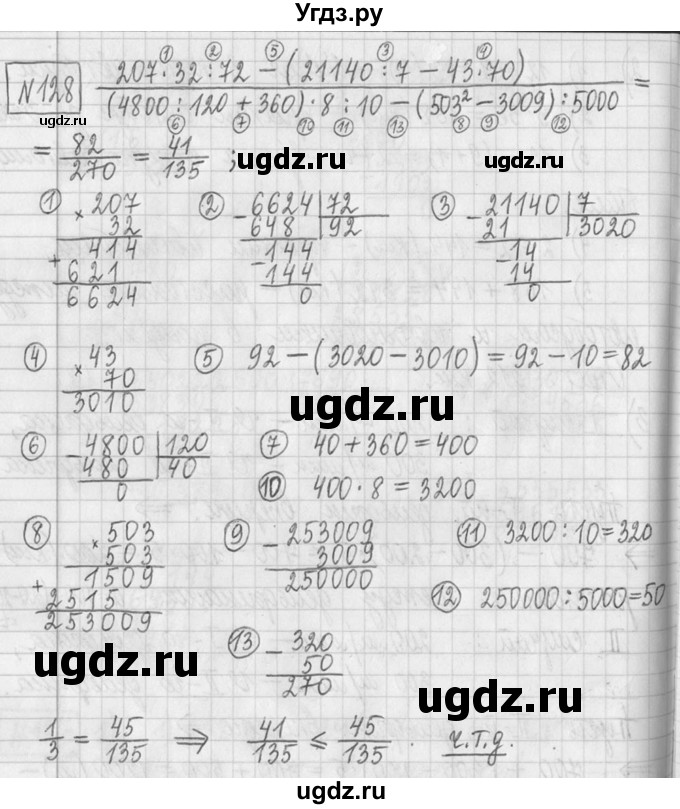 Угдз.ру
№128 (207 · 32 : 72 − (21140 : 7 − 43 · 70)) / ((4800 : 120 + 360) · 8 : 10 − (503² − 3009) : 5000) =
① ② ⑤ ③ ④
⑥ ⑦ ⑩ ⑪ ⑬ ⑧ ⑨ ⑫
= 82/270 = 41/135 ;
ugdz.ru ugdz.ru ugdz.ru
① × 207
32
+ 414
621
6624
② − 6624 | 72
648 | 92
− 144
144
0
③ − 21140 | 7
21 | 3020
− 14
14
0
④ × 43
70
3010
⑤ 92 − (3020 − 3010) = 92 − 10 = 82
ugdz.ru
⑥ − 4800 | 120
480 | 40
0
⑦ 40 + 360 = 400
⑩ 400 · 8 = 3200
⑧ × 503
503
+ 1509
2515
253009
⑨ − 253009
3009
250000
⑪ 3200 : 10 = 320
⑫ 250000 : 5000 = 50
⑬ − 320
50
270
ugdz.ru
ugdz.ru
1/3 = 45/135 ⇒ 41/135 ≤ 45/135 . ч.т.д.
ugdz.ru